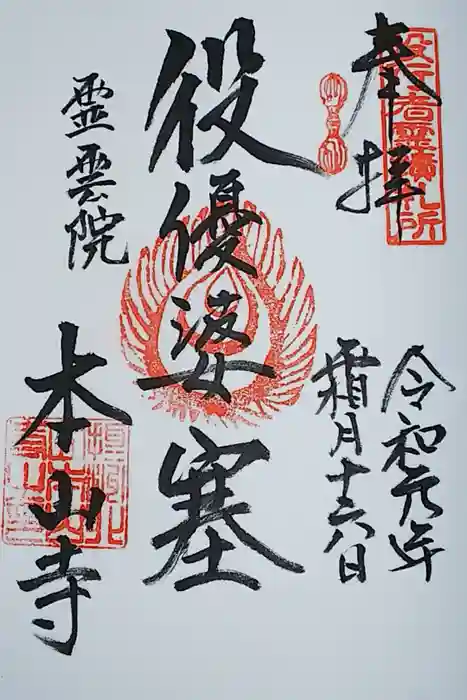 奉拝
役行者霊蹟札所
令和元年
霜月十六日
役優婆塞
霊雲院
本山寺